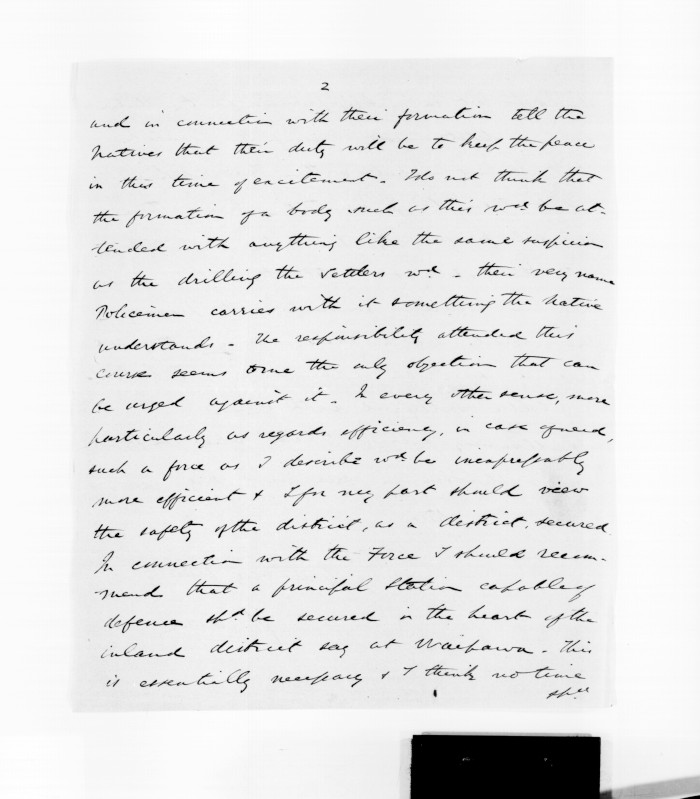 2
and in connection with their formation tell the
Natives that their duty will be to keep the peace
in this time of excitement. I do not think that
the formation of a body such as this wd. be at-
tended with anything like the same suspicion
as the drilling the Settlers wd. - their very name
Policemen carries with it something the Native
understands - The responsibility attended this
course seems to me the only objection that can
be urged against it. In every other sense, more
particularly as regards efficiency, in case of need,
such a force as I describe wd. be inexpressably
more efficient & I for my part should view
the safety of the district, as a district, secured.
In connection with the Force I should recom-
mend that a principal Station capable of
defence shd. be secured in the heart of the
inland district say at Waipawa. This
is essentially necessary & I think no time
shd